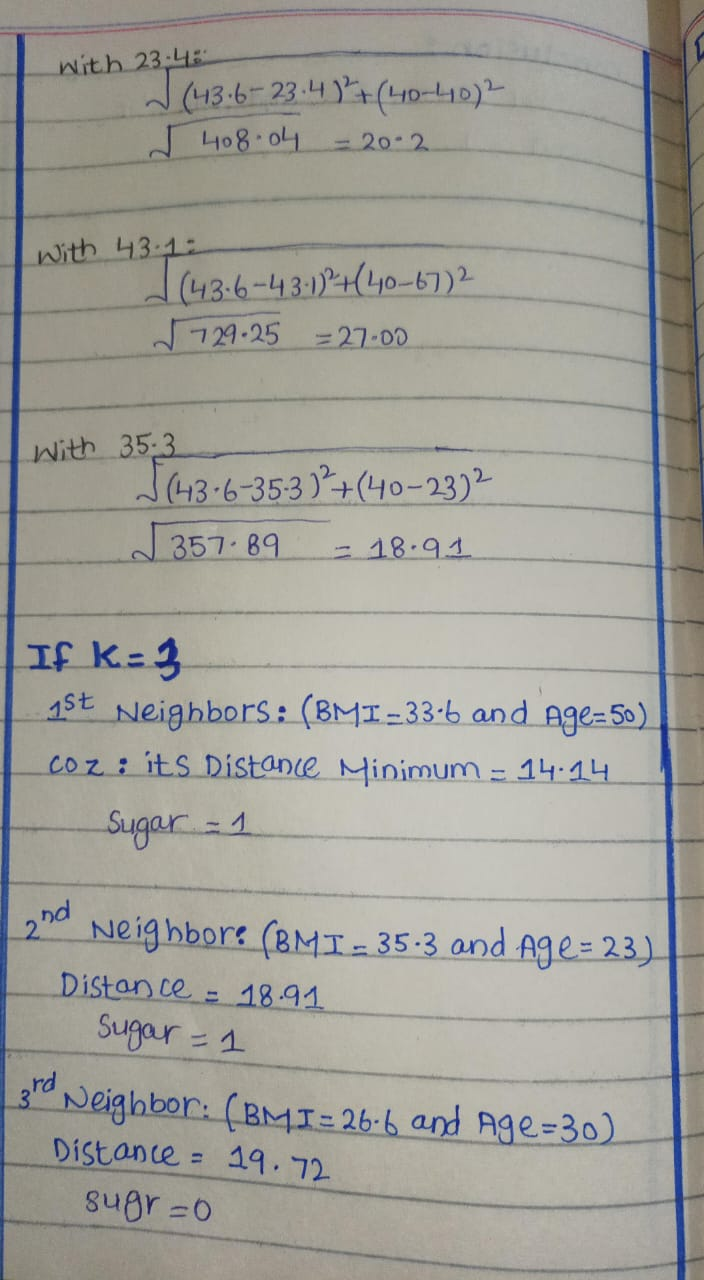 With 23.4:
√(43.6-23.4)²+(40-40)²
√408.04 = 20.2
With 43.1:
√(43.6-43.1)²+(40-67)²
√729.25 = 27.00
With 35.3
√(43.6-35.3)²+(40-23)²
√357.89 = 18.91
If K=3
1st Neighbors: (BMI=33.6 and Age=50)
coz : its Distance Minimum = 14.14
Sugar = 1
2nd Neighbor: (BMI=35.3 and Age=23)
Distance = 18.91
Sugar = 1
3rd Neighbor: (BMI=26.6 and Age=30)
Distance = 19.72
sugr=0